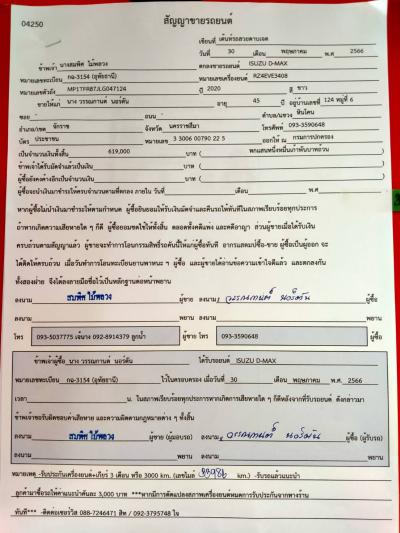 04250
สัญญาขายรถยนต์
เขียนที่ เต้นท์รถสวยดาบเจต
วันที่ 30 เดือน พฤษภาคม พ.ศ 2566
ข้าพเจ้า นางสมพิศ ไม้พลวง ตกลงขายรถยนต์ ISUZU D-MAX
หมายเลขทะเบียน กฉ-3154 (อุทัยธานี) หมายเลขเครื่องยนต์ RZ4EVE3408
หมายเลขตัวถัง MP1TFR87JLG047124 ปี 2020 สี ขาว
ขายให้แก่ นาง วรรณกานต์ นอร์ดัน อายุ 45 ปี อยู่บ้านเลขที่ 124 หมู่ที่ 6
ซอย - ถนน - ตำบล/แขวง หินโคน
อำเภอ/เขต จักราช จังหวัด นครราชสีมา โทรศัพท์ 093-3590648
บัตร ประชาชน หมายเลข 3 3006 00790 22 5 ออกให้ ณ กรมการปกครอง
เป็นจำนวนเงินทั้งสิ้น 619,000 บาท ( หกแสนหนึ่งหมื่นเก้าพันบาทถ้วน )
ข้าพเจ้าได้รับมัดจำแล้วเป็นเงิน บาท ( )
ผู้ซื้อยังคงค้างอีกเป็นจำนวนเงิน บาท ( )
ผู้ซื้อจะนำเงินมาชำระให้ครบจำนวนตามที่ตกลง ภายใน วันที่ เดือน พ.ศ
หากผู้ซื้อไม่นำเงินมาชำระให้ตามกำหนด ผู้ซื้อยินยอมให้ริบเงินมัดจำและคืนรถให้ทันทีในสภาพเรียบร้อยทุกประการ
ถ้าหากเกิดความเสียหายใด ๆ ก็ดี ผู้ซื้อยอมชดใช้ให้ทั้งสิ้น ตลอดทั้งคดีแพ่ง และคดีอาญา ส่วนผู้ขายเมื่อได้รับเงิน
ครบถ้วนตามสัญญาแล้ว ผู้ขายจะทำการโอนกรรมสิทธิ์รถคันนี้ให้แก่ผู้ซื้อทันที อากรแสตมป์ซื้อ-ขาย ผู้ซื้อเป็นผู้ออก จะ
ได้คิดให้ครบถ้วน เมื่อวันทำการโอนทะเบียนยานพาหนะ ฯ ผู้ซื้อ และผู้ขายได้อ่านข้อความเข้าใจดีแล้ว และตกลงกัน
ทั้งสองฝ่าย จึงได้ลงลายมือชื่อไว้เป็นหลักฐานต่อหน้าพยาน
ลงนาม สมพิศ ไม้พลวง ผู้ขาย ลงนาม วรรณกานต์ นอร์ดัน ผู้ซื้อ
ลงนาม พยาน ลงนาม พยาน
โทร 093-5037775 เจ๊นาง 092-8914379 ลูกน้ำ ผู้ขาย โทร 093-3590648 ผู้ซื้อ
ข้าพเจ้าผู้ซื้อ นาง วรรณกานต์ นอร์ดัน ได้รับรถยนต์ ISUZU D-MAX
หมายเลขทะเบียน กฉ-3154 (อุทัยธานี) ไว้ในครอบครอง เมื่อวันที่ 30 เดือน พฤษภาคม พ.ศ. 2566
เวลา น. ในสภาพเรียบร้อยทุกประการหากเกิดการเสียหายใด ๆ ก็ดีหลังจากที่รับรถยนต์ ดังกล่าวมา
ข้าพเจ้าขอรับผิดชอบค่าเสียหาย และความผิดตามกฎหมายต่าง ๆ ทั้งสิ้น
ลงนาม สมพิศ ไม้พลวง ผู้ขาย (ผู้มอบรถ) ลงนาม วรรณกานต์ นอร์ดัน ผู้ซื้อ (ผู้รับรถ)
ลงนาม พยาน ลงนาม พยาน
หมายเหตุ -รับประกันเครื่องยนต์+เกียร์ 3 เดือน หรือ 3000 km. (เลขไมล์ km.) -รับรถแล้วแนะนำ
ลูกค้ามาซื้อรถให้ค่าแนะนำคันละ 3,000 บาท ***หากมีการดัดแปลงสภาพเครื่องยนต์หมดการรับประกันจากทางร้าน
ทันที*** -ติดต่อเซอร์วิส 088-7246471 สิท / 092-3795748 ใจ